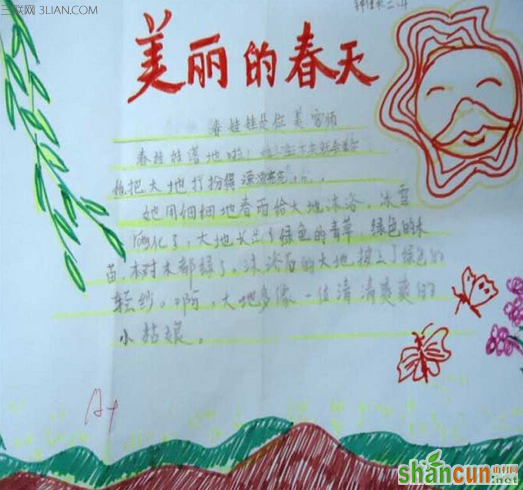 三联网 3LIAN.COM
二、4
美丽的春天
春娃娃是位美容师
春娃娃
把大地打扮得
她用细细地春雨给大地沐浴。冰雪
融化了，大地长出了绿色的青草，绿色的禾
苗，树木都绿了。沐浴后的大地，披上了绿色的
轻纱。啊，大地多像一位清清爽爽的
小姑娘。
A+
shancun
山村网
.net